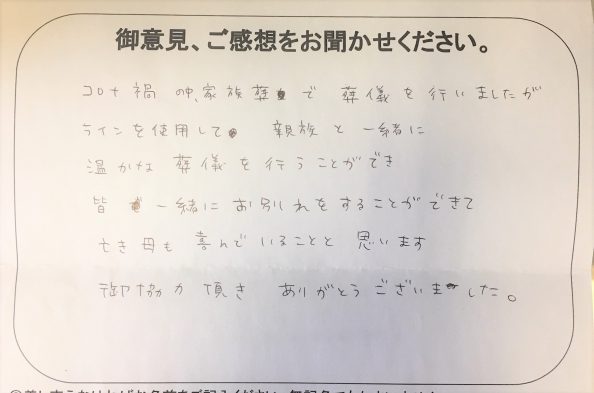 御意見、ご感想をお聞かせください。
コロナ禍の中、家族葬で葬儀を行いましたが
ラインを使用して親族と一緒に
温かな葬儀を行うことができ
皆一緒にお別れをすることができて
亡き母も喜んでいることと思います
御協力頂きありがとうございました。